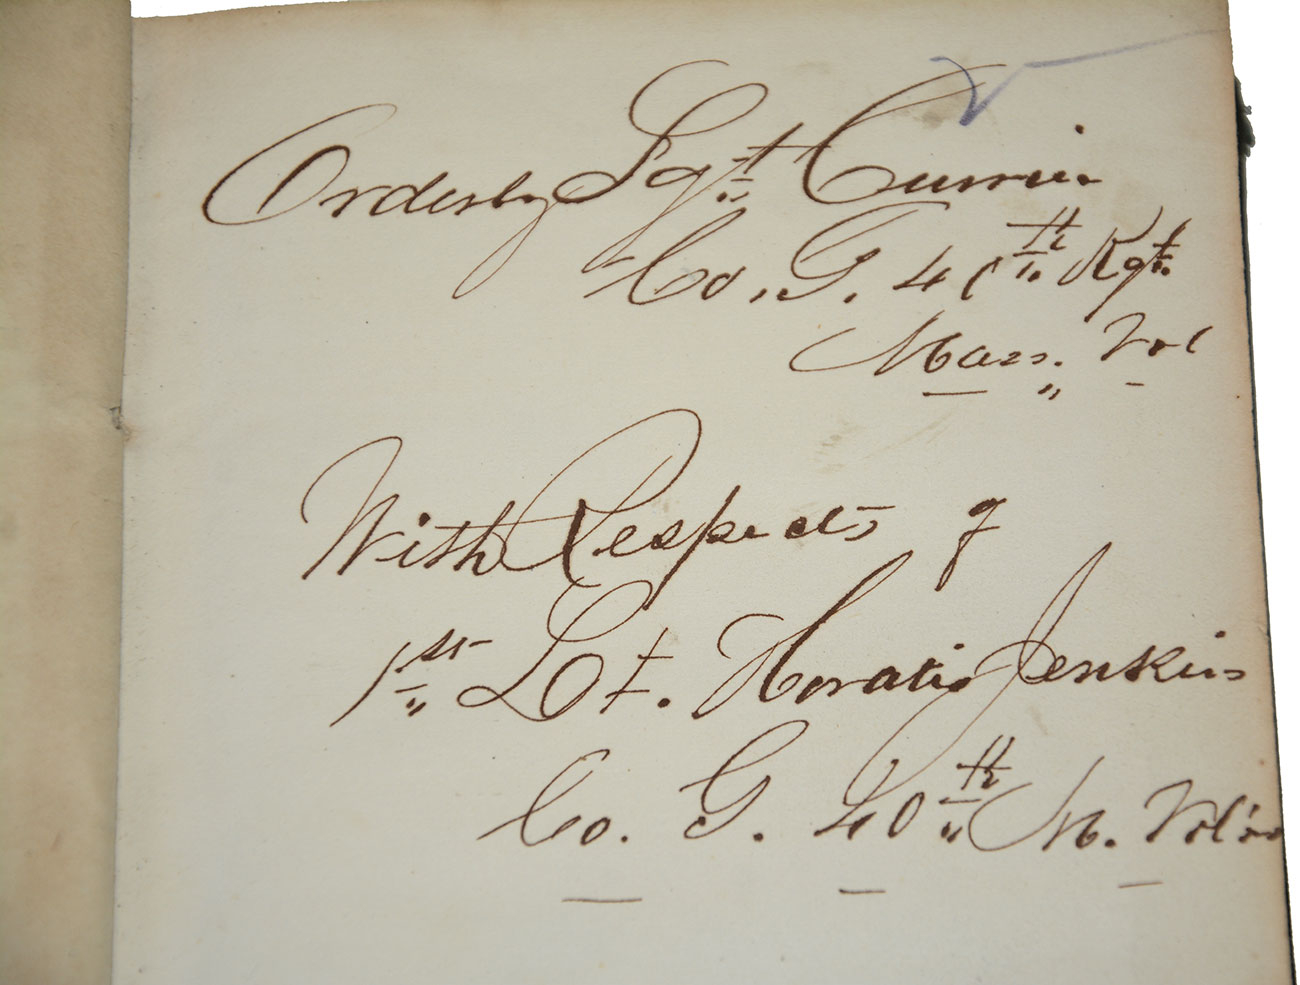 Orderly Sgt Currier
Co. G. 40th Rgt.
Mass. Vol
With Respects of
1st Lt. Horatio Jenkins
Co. G. 40th M. Vol's